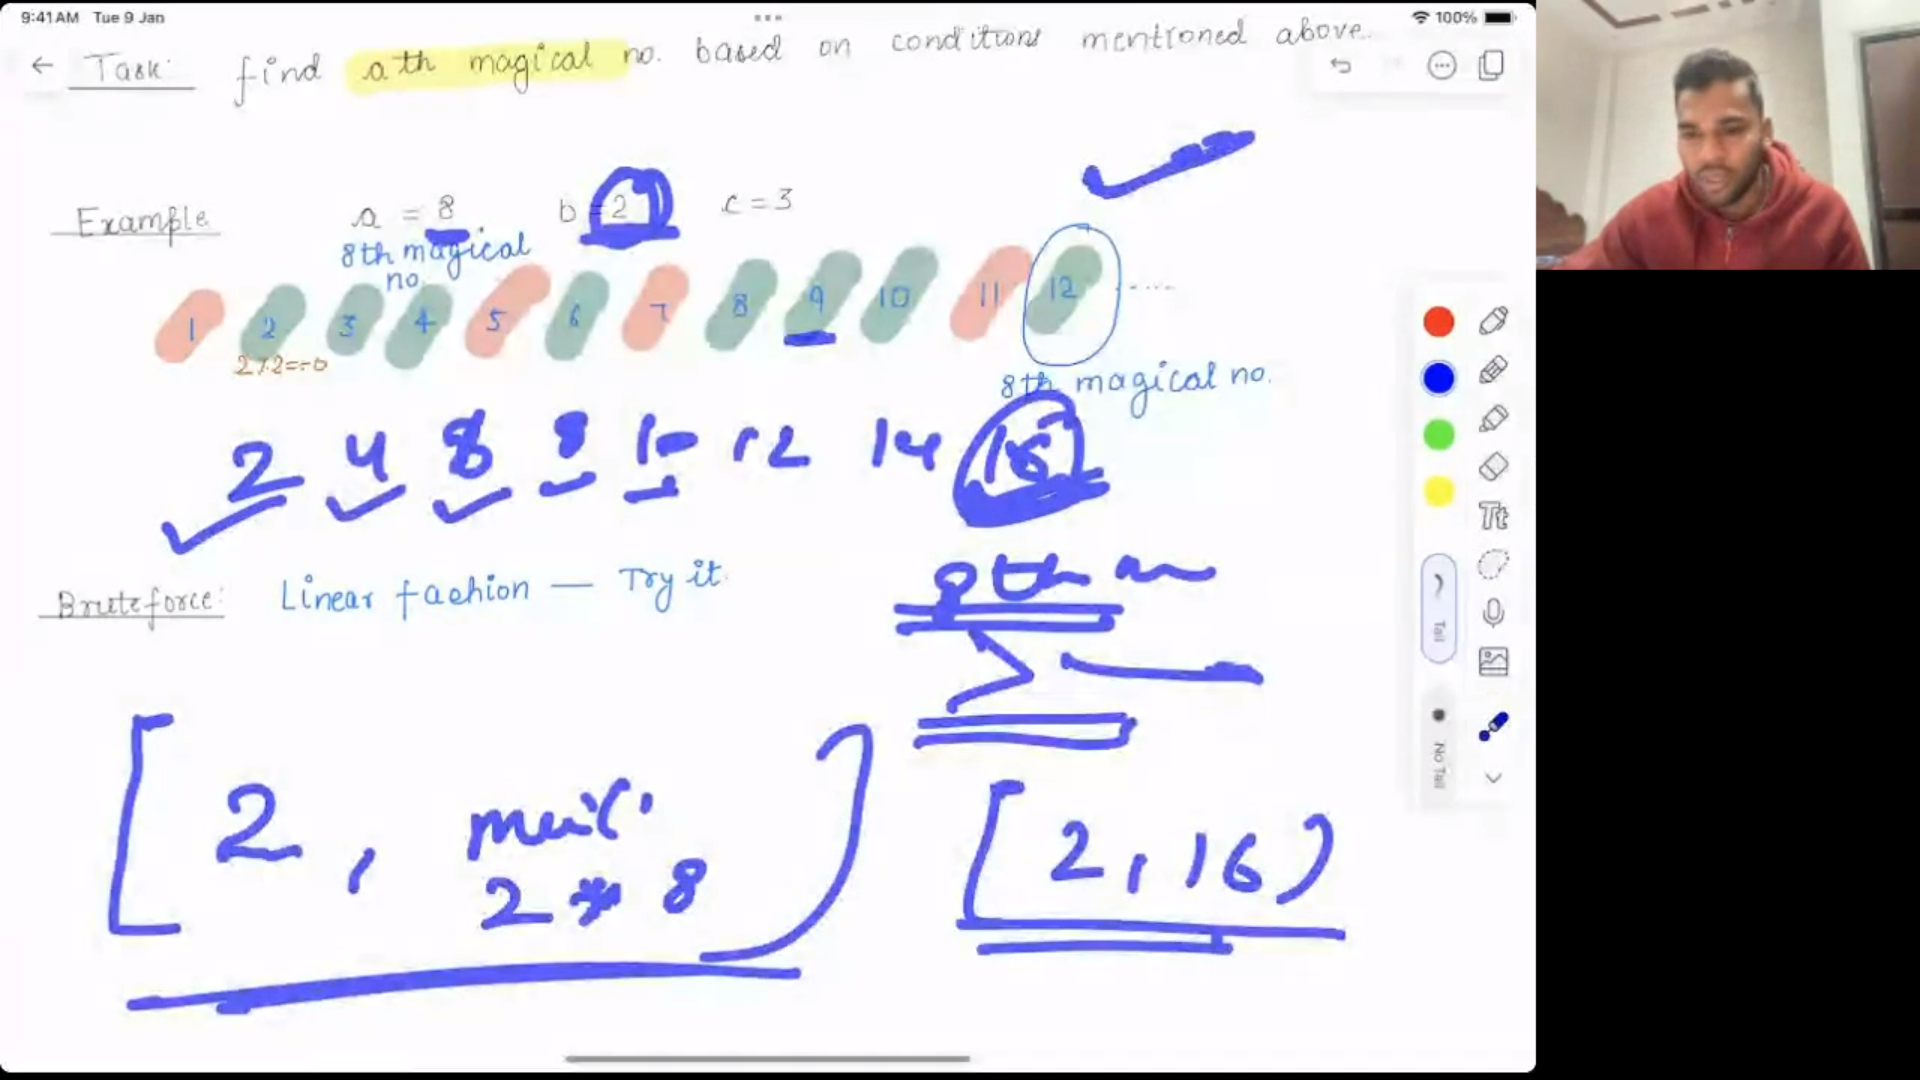 9:41 AM Tue 9 Jan
100%
Task: find ath magical no. based on conditions mentioned above.
Example a = 8 b = 2 c = 3
8th magical
no.
1 2 3 4 5 6 7 8 9 10 11 12 .....
2%2==0
8th magical no.
2 4 8 8 10 12 14 16
8th m
Bruteforce: Linear fashion — Try it.
[ 2 , 2 * 8 )
[ 2, 16 )
Tt
Tail
No Tail